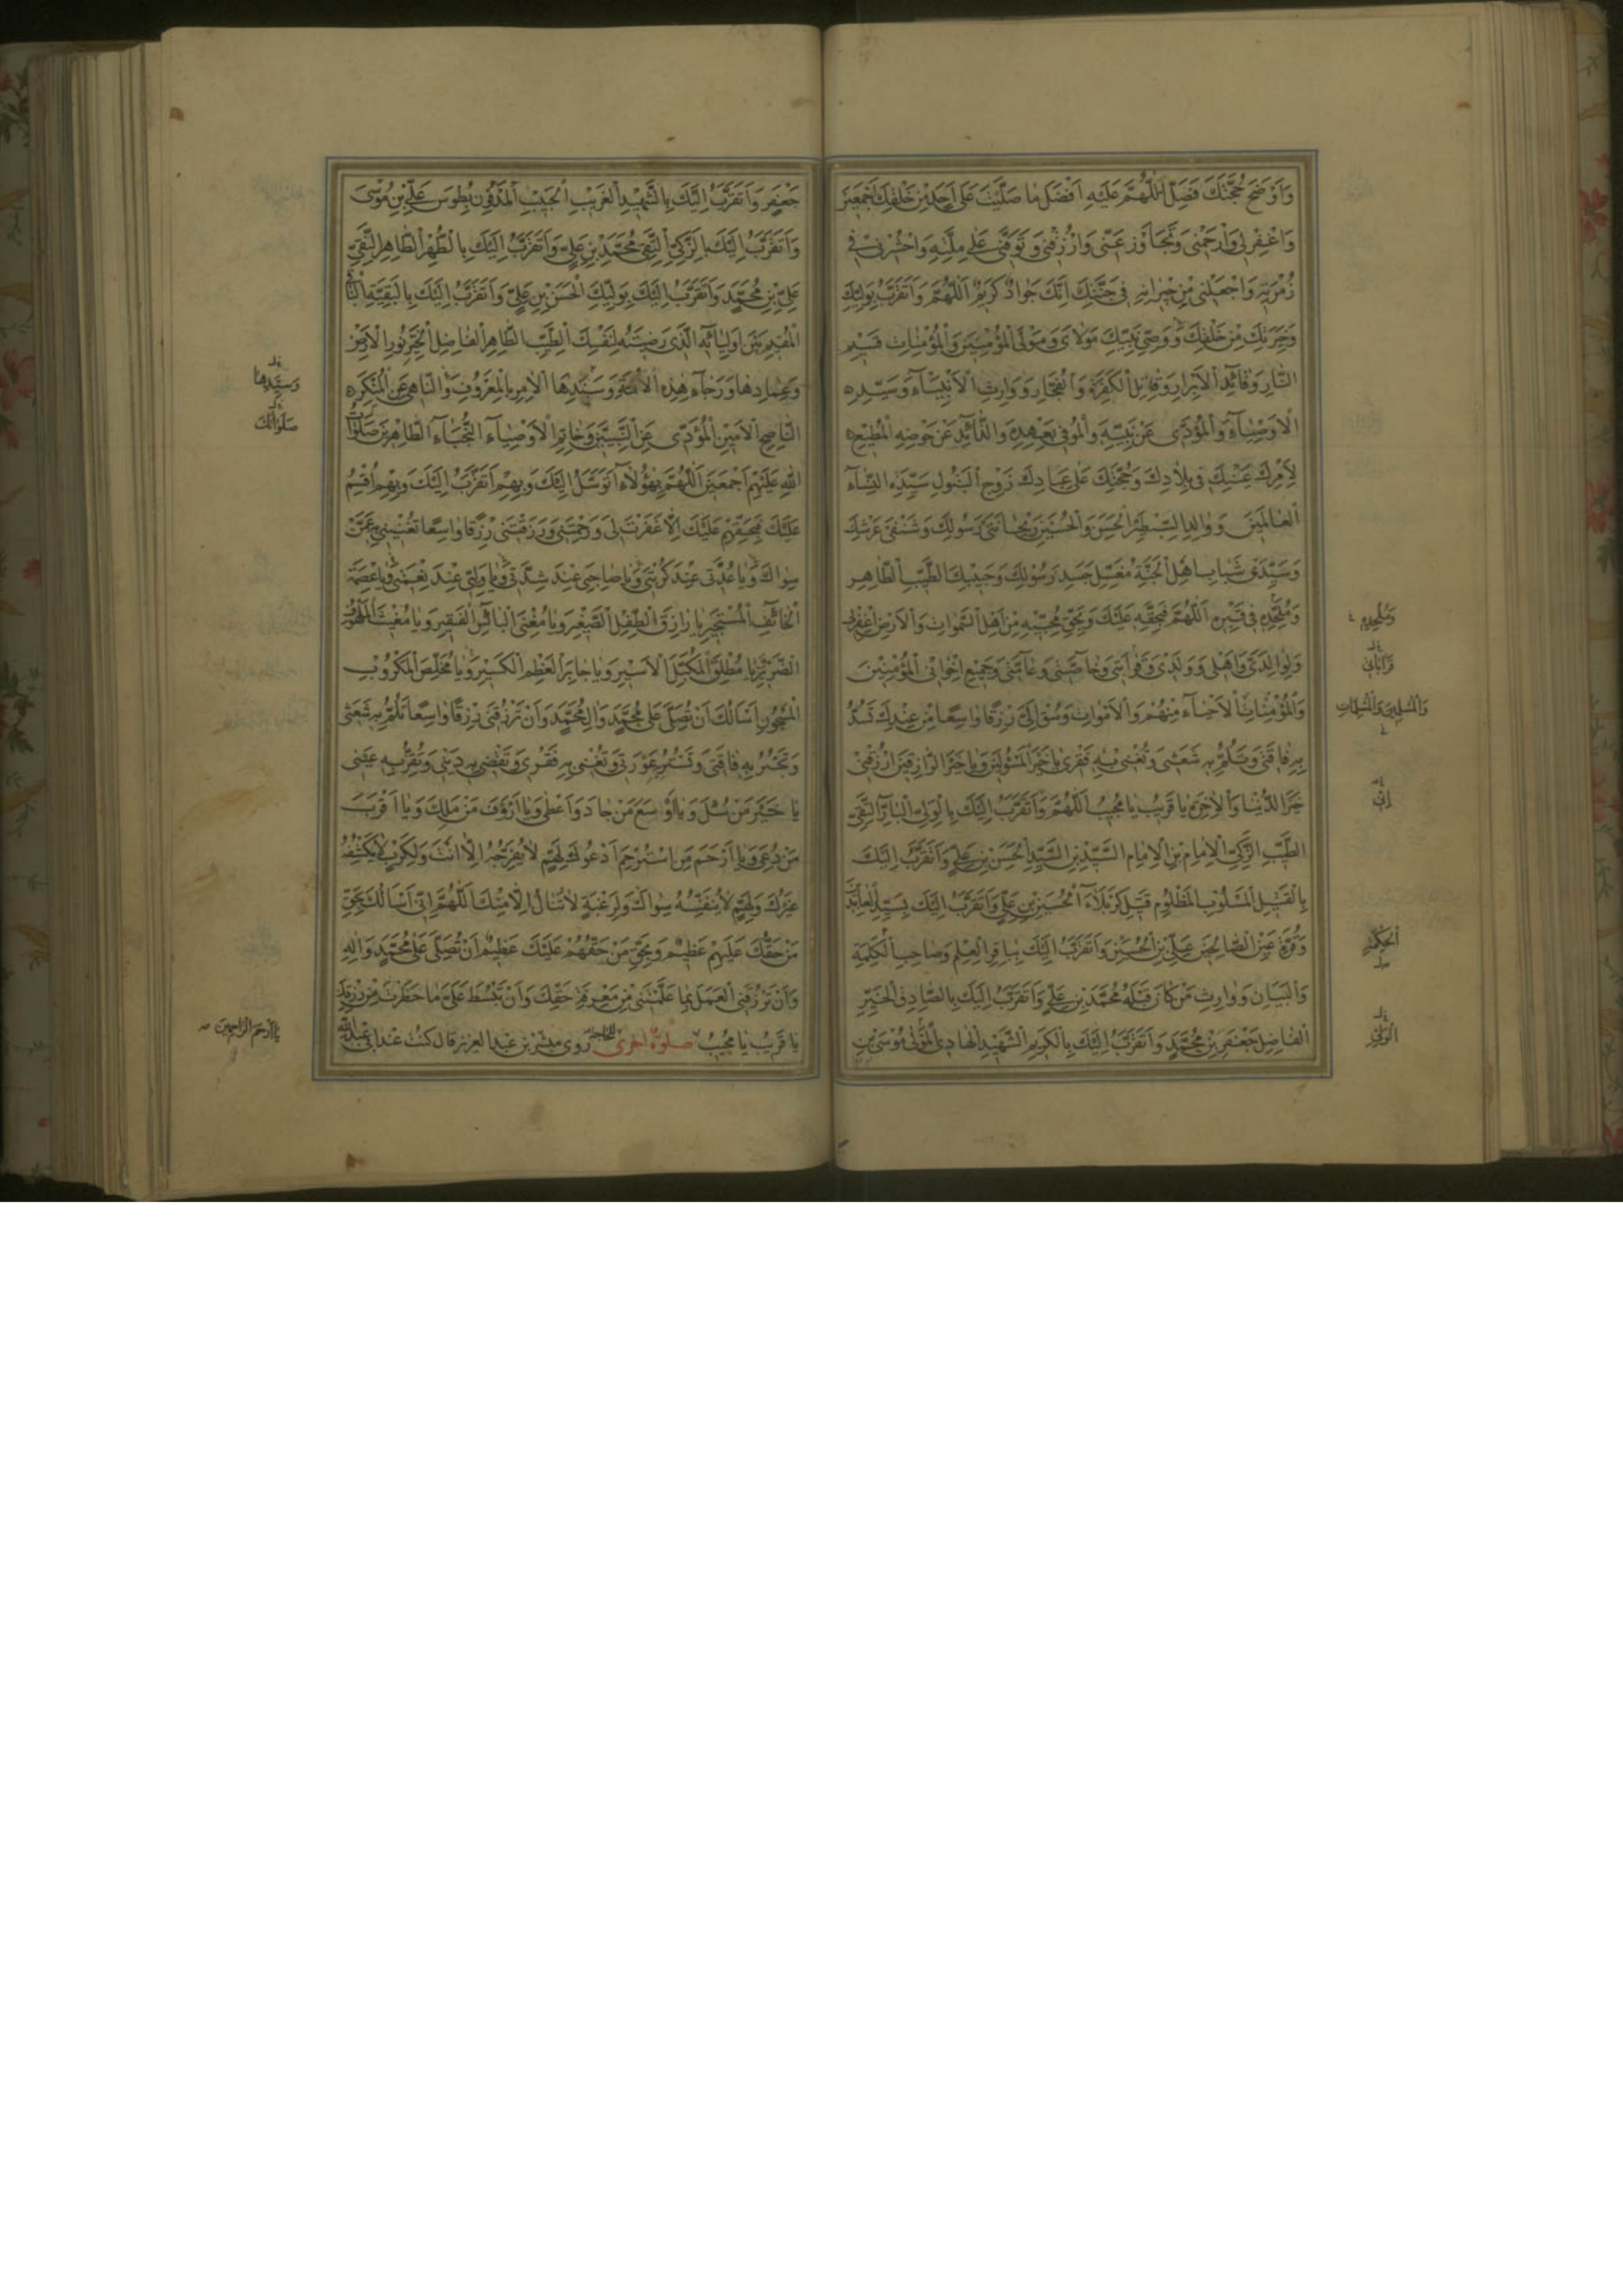 وَاَوْضَحَ حُجَّتَكَ فَصَلِّ اللّٰهُمَّ عَلَيْهِ اَفْضَلَ ما صَلَّيْتَ عَلٰى اَحَدٍ مِنْ خَلْقِكَ اَجْمَعينَ
وَاغْفِرْ لى وَارْحَمْنى وَتَجاوَزْ عَنّى وَارْزُقْنى وَتَوَفَّنى عَلٰى مِلَّتِهِ وَاحْشُرْنى فى
زُمْرَتِهِ وَاجْعَلْنى مِنْ جيرانِهِ فى جَنَّتِكَ اِنَّكَ جَوادٌ كَريمٌ اَللّٰهُمَّ وَاَتَقَرَّبُ بِوَلِيِّكَ
وَخِيَرَتِكَ مِنْ خَلْقِكَ وَوَصِىِّ نَبِيِّكَ مَوْلاىَ وَمَوْلَى الْمُؤْمِنينَ وَالْمُؤْمِناتِ قَسيمِ
النّارِ وَقائِدِ الْاَبْرارِ وَقاتِلِ الْكَفَرَةِ وَالْفُجّارِ وَوارِثِ الْاَنْبِياءِ وَسَيِّدِ
الْاَوْصِياءِ وَالْمُؤَدّى عَنْ نَبِيِّهِ وَالْمُوفى بِعَهْدِهِ وَالذّائِدِ عَنْ حَوْضِهِ الْمُطيعِ
لِاَمْرِكَ عَيْنِكَ فى بِلادِكَ وَحُجَّتِكَ عَلٰى عِبادِكَ زَوْجِ الْبَتُولِ سَيِّدَةِ النِّساءِ
الْعالَمينَ وَوالِدِ السِّبْطَيْنِ الْحَسَنِ وَالْحُسَيْنِ رَيْحانَتَىْ رَسُولِكَ وَشَنْفَىْ عَرْشِكَ
وَسَيِّدَىْ شَبابِ اَهْلِ الْجَنَّةِ مُغَسِّلِ جَسَدِ رَسُولِكَ وَحَبيبِكَ الطَّيِّبِ الطّاهِرِ
وَمُلْحِدِهِ فى قَبْرِهِ اَللّٰهُمَّ فَبِحَقِّهِ عَلَيْكَ وَبِحَقِّ مُحِبّيهِ مِنْ اَهْلِ السَّمٰواتِ وَالْاَرْضِ اغْفِرْ لى
وَلِوالِدَىَّ وَاَهْلى وَوَلَدى وَقَرابَتى وَخاصَّتى وَعامَّتى وَجَميعِ اِخْوانِى الْمُؤْمِنينَ
وَالْمُؤْمِناتِ الْاَحْياءِ مِنْهُمْ وَالْاَمْواتِ وَسُقْ اِلَىَّ رِزْقًا واسِعًا مِنْ عِنْدِكَ تَسُدُّ
بِهِ فاقَتى وَتَلُمُّ بِهِ شَعَثى وَتُغْنى بِهِ فَقْرى يا خَيْرَ الْمَسْئُولينَ وَيا خَيْرَ الرّازِقينَ ارْزُقْنى
خَيْرَ الدُّنْيا وَالْاٰخِرَةِ يا قَريبُ يا مُجيبُ اَللّٰهُمَّ وَاَتَقَرَّبُ اِلَيْكَ بِالْوَلِىِّ الْبارِّ التَّقِىِّ
الطَّيِّبِ الزَّكِىِّ الْاِمامِ بْنِ الْاِمامِ السَّيِّدِ بْنِ السَّيِّدِ الْحَسَنِ بْنِ عَلِىٍّ وَاَتَقَرَّبُ اِلَيْكَ
بِالْقَتيلِ الْمَسْلُوبِ الْمَظْلُومِ قَتيلِ كَرْبَلاءَ الْحُسَيْنِ بْنِ عَلِىٍّ وَاَتَقَرَّبُ اِلَيْكَ بِسَيِّدِ الْعابِدينَ
وَقُرَّةِ عَيْنِ الصّالِحينَ عَلِىِّ بْنِ الْحُسَيْنِ وَاَتَقَرَّبُ اِلَيْكَ بِباقِرِ الْعِلْمِ وَصاحِبِ الْحِكْمَةِ
وَالْبَيانِ وَوارِثِ مَنْ كانَ قَبْلَهُ مُحَمَّدِ بْنِ عَلِىٍّ وَاَتَقَرَّبُ اِلَيْكَ بِالصّادِقِ الْخَيِّرِ
الْفاضِلِ جَعْفَرِ بْنِ مُحَمَّدٍ وَاَتَقَرَّبُ اِلَيْكَ بِالْكَريمِ الشَّهيدِ الْهادِى الْمَوْلٰى مُوسَى بْنِ
وَمُلْحِدِهِ
قَراباتى
وَالْمُسْلِمينَ وَالْمُسْلِماتِ
الْحِكْمَةِ
جَعْفَرٍ وَاَتَقَرَّبُ اِلَيْكَ بِالشَّهيدِ الْغَريبِ الْحَبيبِ الْمَدْفُونِ بِطُوسَ عَلِىِّ بْنِ مُوسٰى
وَاَتَقَرَّبُ اِلَيْكَ بِالزَّكِىِّ التَّقِىِّ مُحَمَّدِ بْنِ عَلِىٍّ وَاَتَقَرَّبُ اِلَيْكَ بِالطُّهْرِ الطّاهِرِ النَّقِىِّ
عَلِىِّ بْنِ مُحَمَّدٍ وَاَتَقَرَّبُ اِلَيْكَ بِوَلِيِّكَ الْحَسَنِ بْنِ عَلِىٍّ وَاَتَقَرَّبُ اِلَيْكَ بِالْبَقِيَّةِ الْباقى
الْمُقيمِ بَيْنَ اَوْلِيائِهِ الَّذى رَضيتَهُ لِنَفْسِكَ الطَّيِّبِ الطّاهِرِ الْفاضِلِ الْخَيِّرِ نُورِ الْاَرْضِ
وَعِمادِها وَرَجاءِ هٰذِهِ الْاُمَّةِ وَسَنَدِهَا الْاٰمِرِ بِالْمَعْرُوفِ وَالنّاهى عَنِ الْمُنْكَرِ
النّاصِحِ الْاَمينِ الْمُؤَدّى عَنِ النَّبِيّينَ وَخاتَمِ الْاَوْصِياءِ النُّجَباءِ الطّاهِرينَ صَلَواتُ
اللّٰهِ عَلَيْهِمْ اَجْمَعينَ اَللّٰهُمَّ بِهٰؤُلاءِ اَتَوَسَّلُ اِلَيْكَ وَبِهِمْ اَتَقَرَّبُ اِلَيْكَ وَبِهِمْ اُقْسِمُ
عَلَيْكَ فَبِحَقِّهِمْ عَلَيْكَ اِلّا غَفَرْتَ لى وَرَحِمْتَنى وَرَزَقْتَنى رِزْقًا واسِعًا تُغْنينى بِهِ عَمَّنْ
سِواكَ وَيا عُدَّتى عِنْدَ كُرْبَتى وَيا صاحِبى عِنْدَ شِدَّتى وَيا وَلِيّى عِنْدَ نِعْمَتى وَيا عِصْمَةَ
الْخائِفِ الْمُسْتَجيرِ يا رازِقَ الطِّفْلِ الصَّغيرِ وَيا مُغْنِىَ الْبائِسِ الْفَقيرِ وَيا مُغيثَ الْمَلْهُوفِ
الضَّريرِ يا مُطْلِقَ الْمُكَبَّلِ الْاَسيرِ وَيا جابِرَ الْعَظْمِ الْكَسيرِ وَيا مُخَلِّصَ الْمَكْرُوبِ
الْمَسْجُونِ اَسْاَلُكَ اَنْ تُصَلِّىَ عَلٰى مُحَمَّدٍ وَاٰلِ مُحَمَّدٍ وَاَنْ تَرْزُقَنى رِزْقًا واسِعًا تَلُمُّ بِهِ شَعَثى
وَتَجْبُرُ بِهِ فاقَتى وَتَسْتُرُ بِهِ عَوْرَتى وَتُغْنى بِهِ فَقْرى وَتَقْضى بِهِ دَيْنى وَتُقِرُّ بِهِ عَيْنى
يا خَيْرَ مَنْ سُئِلَ وَيا اَوْسَعَ مَنْ جادَ وَاَعْطٰى وَيا اَرْؤَفَ مَنْ مَلَكَ وَيا اَقْرَبَ
مَنْ دُعِىَ وَيا اَرْحَمَ مَنِ اسْتُرْحِمَ اَدْعُوكَ لِهَمٍّ لا يُفَرِّجُهُ اِلّا اَنْتَ وَلِكَرْبٍ لا يَكْشِفُهُ
غَيْرُكَ وَلِهَمٍّ لا يُنَفِّسُهُ سِواكَ وَلِرَغْبَةٍ لا تُنالُ اِلّا مِنْكَ اَللّٰهُمَّ اِنّى اَسْاَلُكَ بِحَقِّ
مَنْ حَقُّكَ عَلَيْهِمْ عَظيمٌ وَبِحَقِّ مَنْ حَقُّهُمْ عَلَيْكَ عَظيمٌ اَنْ تُصَلِّىَ عَلٰى مُحَمَّدٍ وَاٰلِهِ
وَاَنْ تَرْزُقَنِى الْعَمَلَ بِما عَلَّمْتَنى مِنْ مَعْرِفَةِ حَقِّكَ وَاَنْ تَبْسُطَ عَلَىَّ ما حَظَرْتَ مِنْ رِزْقِكَ
يا قَريبُ يا مُجيبُ صلوة اخرى للحاجة روى مبشر بن عبد العزيز قال كنت عند ابى عبد الله
وَسَيِّدِها
صَلَواتُكَ
يا اَرْحَمَ الرّاحِمينَ